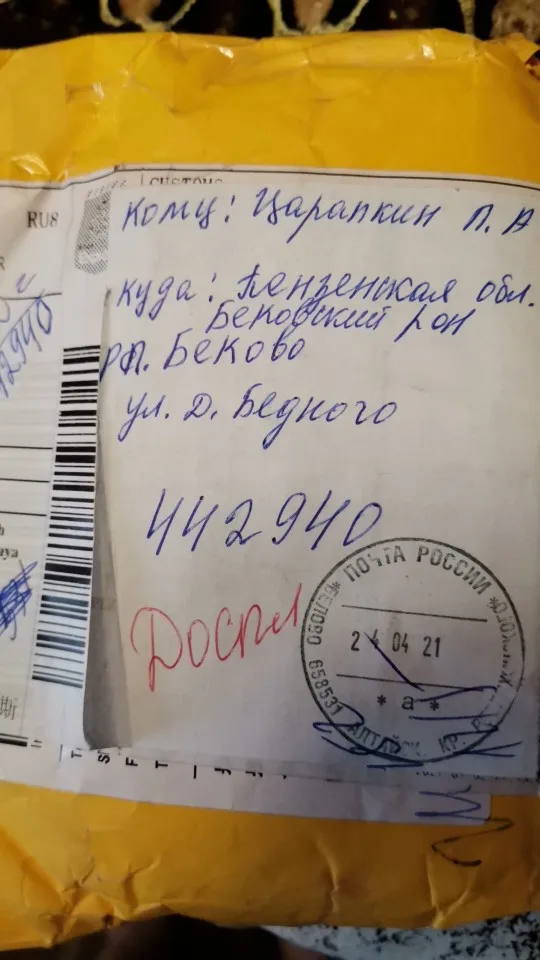 CUSTOMS
RU8
Кому: Царапкин П. А
куда: Пензенская обл.
Бековский рон
рп. Беково
ул. Д. Бедного
442940
Досыл
ПОЧТА РОССИИ
24 04 21
* а *
658531 АЛТАЙСК. КР.